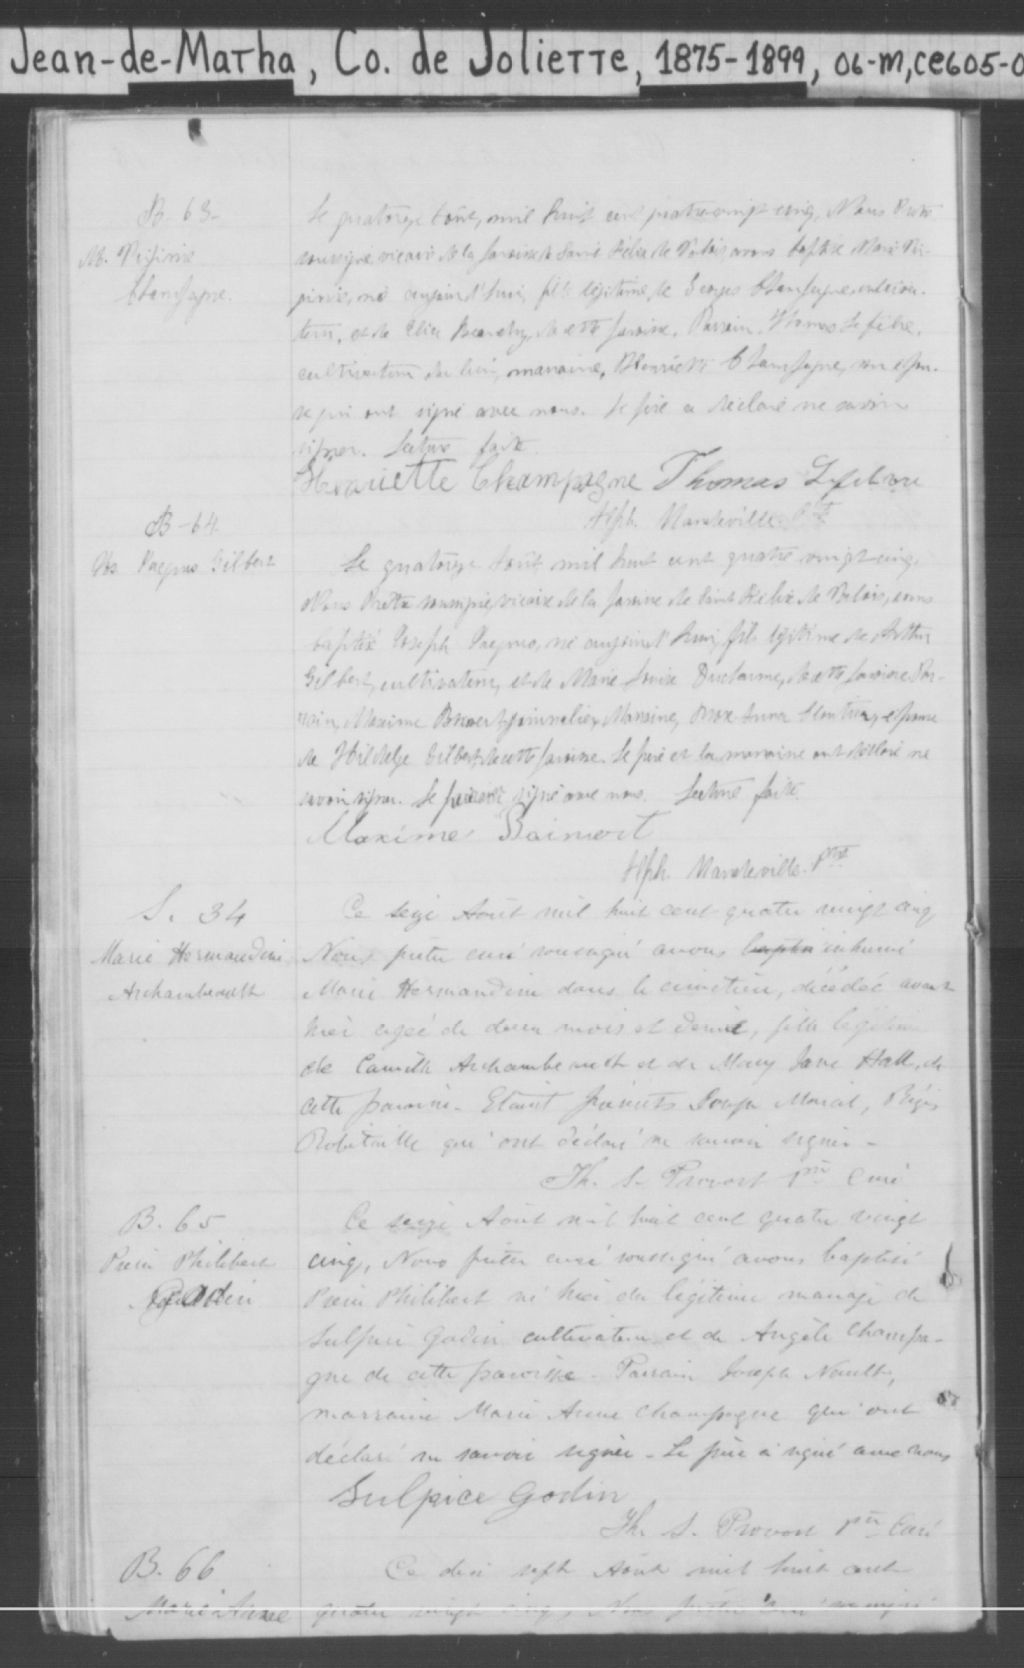 Jean-de-Matha, Co. de Joliette, 1875-1899, 06-M, CE605-0
B- 63-
M. Virginie
Champagne.
Le quatorze Août, mil huit cent quatre-vingt cinq, Nous Prêtre
soussigné, vicaire de la paroisse de Saint Félix de Valois, avons baptisé Marie Vir-
ginie, née aujourd'hui, fille légitime de Georges Champagne, cultiva-
teur, et de de cette paroisse. Parrain, Thomas Lefebre,
cultivateur du lieu, marraine, Henriette Champagne, son épou-
se qui ont signé avec nous. Le père a déclaré ne savoir
signer. Lecture faite.
Henriette Champagne Thomas Lefebvre
Alph. Mandeville Ptre
B-64.
Jos. Gilbert
Le quatorze Août mil huit cent quatre vingt cinq,
Nous Prêtre soussigné, vicaire de la paroisse de Saint Félix de Valois, avons
baptisé Joseph né aujourd'hui, fils légitime de Arthur
Gilbert, cultivateur, et de Marie Louise Ducharme, de cette paroisse. Par-
rain, Maxime Marraine, Anna épouse
de Gilbert, de cette paroisse. Le père et la marraine ont déclaré ne
savoir signer. Le parrain a signé avec nous. Lecture faite.
Maxime
Alph. Mandeville. ptre
S. 34
Marie Hermandine
Archambeault
Ce seize Août mil huit cent quatre vingt cinq
Nous prêtre curé soussigné avons baptisé inhumé
Marie Hermandine dans le cimetière, décédée avant
hier agée de deux mois et demie, fille légitime
de Camille Archambeault et de Mary Jane Hall, de
cette paroisse. Etaient présents Joseph Marcil, Régis
Robitaille qui ont déclaré ne savoir signer-
Th. S. Provost ptre Curé
B. 65
Pierre Philibert
Godin
Ce seize Août mil huit cent quatre vingt
cinq, Nous prêtre curé soussigné avons baptisé
Pierre Philibert né hier du légitime mariage de
Sulpice Godin cultivateur et de Angèle Champa-
gne de cette paroisse- Parrain Joseph Nault,
marraine Marie Anne Champagne qui ont
déclaré ne savoir signer- Le père a signé avec nous
Sulpice Godin
Th. S. Provost ptre Curé
B. 66
Marie Anne
Ce dix sept Août mil huit cent
quatre vingt cinq, Nous prêtre curé soussigné